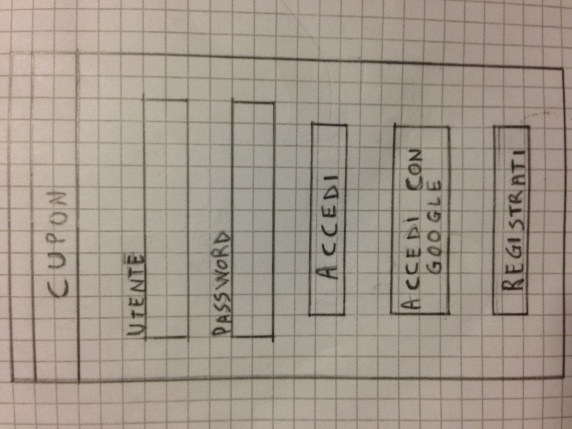 CUPON
UTENTE
PASSWORD
ACCEDI
ACCEDI CON
GOOGLE
REGISTRATI